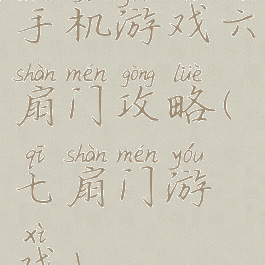 手机游戏六
shàn mén gōng lüè
扇门攻略(
qī shàn mén yóu
七扇门游
xì
戏)